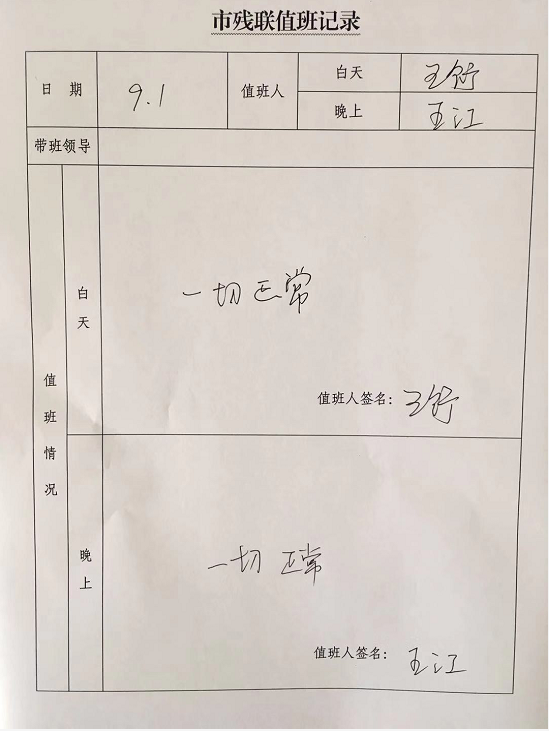 市残联值班记录
日 期 9.1 值班人 白天 王
晚上 王江
带班领导
值班情况
白天
一切正常
值班人签名: 王
晚上
一切正常
值班人签名: 王江